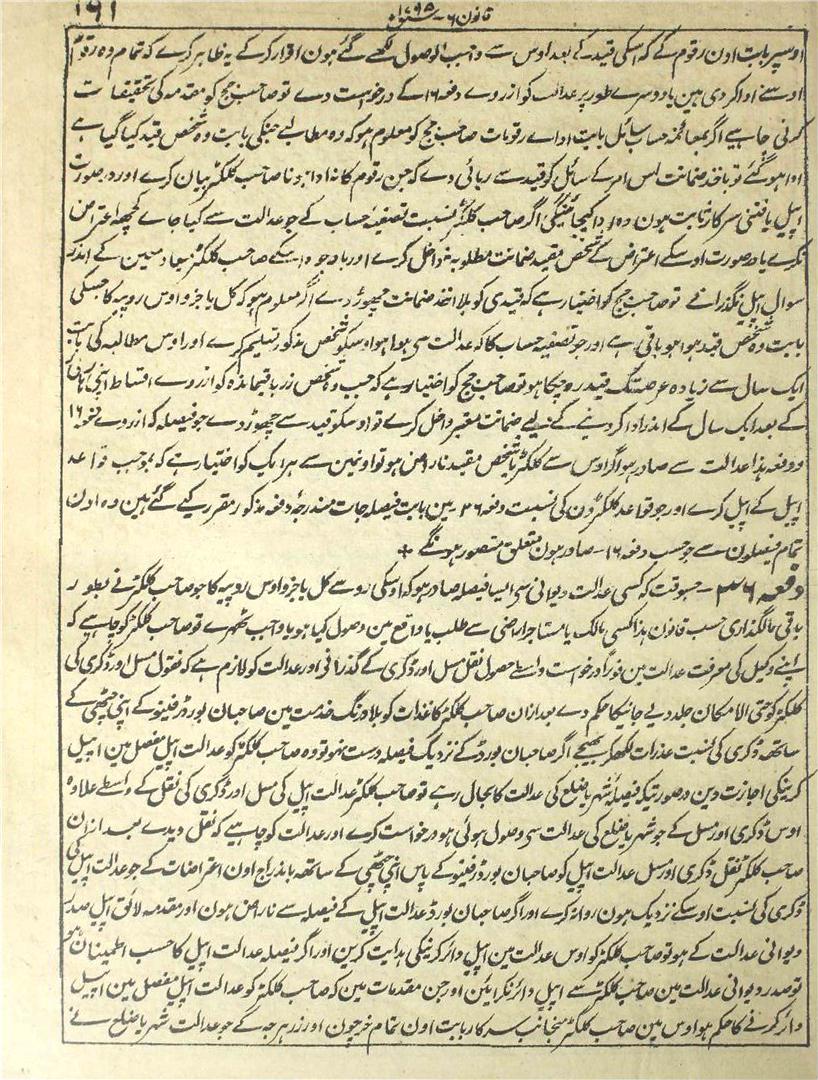 ۱۶۱
قانون ۶ - سنہ ۱۷۹۵ء
اوسپر بابت اون رقوم کے کہ اسکی قید کے بعد اوس سے واجب الوصول لکھے گئے ہون اقرار کرکے یہ ظاہر کرے کہ تمام وہ رقوم
اوسنے ادا کر دی ہین یا دوسرے طور پر عدالت کو ازروے دفعہ ۱۶ کے درخواست دے تو صاحب جج کو مقدمہ کی تحقیقات
کرنی چاہیے اگر بمعائنہ حساب سائل بابت اداے رقومات صاحب جج کو معلوم ہو کہ وہ مطالبے جنکی بابت وہ شخص قید کیا گیا ہے
ادا ہو گئے تو باخذ ضمانت اس امر کے سائل کو قید سے رہائی دے کہ جن رقوم کا نہ ادا ہونا صاحب کلکٹر بیان کرے اور در صورت
اپیل یافتنی سرکار ثابت ہون وہ ادا کیجائینگی اگر صاحب کلکٹر نسبت تصفیہ حساب کے جو عدالت سے کیا جاے کچھہ اعتراض
نکرے یا در صورت اوسکے اعتراض کے شخص مقید ضمانت مطلوبہ نداخل کرے اور باوجود اسکے صاحب کلکٹر میعاد معین کے اندر
سوال اپیل نگذرانے تو صاحب جج کو اختیار ہے کہ قیدی کو بلا اخذ ضمانت چھوڑ دے اگر معلوم ہو کہ کل یا جزو اوس روپیہ کا جسکی
بابت وہ شخص قید ہوا ہو باقی ہے اور جو تصفیہ حساب کا کہ عدالت سی ہوا ہو اوسکو شخص مذکور تسلیم کرے اور اوس مطالبہ کی بابت
ایک سال سے زیادہ عرصہ تک قید رہ چکا ہو تو صاحب جج کو اختیار ہے کہ جب وہ شخص زر باقیماندہ کو ازروے اقساط اپنی رہائی
کے بعد ایک سال کے اندر ادا کر دینے کے لیے ضمانت معتبر داخل کرے تو اوسکو قید سے چھوڑ دے جو فیصلہ کہ ازروے دفعہ ۱۶
و دفعہ ہذا عدالت سے صادر ہو اگر اوس سے کلکٹر یا شخص مقید ناراض ہو تو اونمین سے ہر ایک کو اختیار ہے کہ بموجب قواعد
اپیل کے اپیل کرے اور جو قواعد کلکٹرون کی نسبت دفعہ ۳۶ - مین بابت فیصلہ جات مندرجہ دفعہ مذکور مقرر کیے گئے ہین وہ اون
تمام فیصلون سے جو حسب دفعہ ۱۶ - صادر ہون متعلق متصور ہونگے +
دفعہ ۳۶ - جسوقت کہ کسی عدالت دیوانی سی ایسا فیصلہ صادر ہو کہ اوسکی رو سے کل یا جزو اوس روپیہ کا جو صاحب کلکٹر نے بطور
باقی مالگذاری حسب قانون ہذا کسی مالک یا مستاجر اراضی سے طلب یا واقع مین وصول کیا ہو یا واجب ٹھہرے تو صاحب کلکٹر کو چاہیے کہ
اپنے وکیل کی معرفت عدالت مین فوراً درخواست واسطے حصول نقل مسل اور ڈگری کے گذرانے اور عدالت کو لازم ہے کہ نقول مسل اور ڈگری کی
کلکٹر کو حتی الامکان جلد دیے جانیکا حکم دے بعد ازان صاحب کلکٹر کاغذات کو بلا درنگ خدمت مین صاحبان بورڈ رفینو کے اپنی چٹھی کے
ساتھہ ڈگری کی نسبت عذرات لکھکر بھیجے اگر صاحبان بورڈ کے نزدیک فیصلہ درست نہو تو وہ صاحب کلکٹر کو عدالت اپیل مفصل مین اپیل
کرینکی اجازت دین درصورتیکہ فیصلہ شہر یا ضلع کی عدالت کا بحال رہے تو صاحب کلکٹر عدالت اپیل کی مسل اور ڈگری کی نقل کے واسطے علاوہ
اوس ڈگری اور مسل کے جو شہر یا ضلع کی عدالت سی وصول ہوئی ہو درخواست کرے اور عدالت کو چاہیے کہ نقل دیدے بعد ازان
صاحب کلکٹر نقل ڈگری اور مسل عدالت اپیل کو صاحبان بورڈ رفینو کے پاس اپنی چٹھی کے ساتھہ باندراج اون اعتراضات کے جو عدالت اپیل کی
ڈگری کی نسبت اوسکے نزدیک ہون روانہ کرے اور اگر صاحبان بورڈ عدالت اپیل کے فیصلہ سے ناراض ہون اور مقدمہ لائق اپیل صدر
دیوانی عدالت کے ہو تو صاحب کلکٹر کو اوس عدالت مین اپیل دائر کرنیکی ہدایت کرین اور اگر فیصلہ عدالت اپیل کا حسب اطمینان ہو
تو صدر دیوانی عدالت مین صاحب کلکٹر سے اپیل دائر نکرائین اور جن مقدمات مین کہ صاحب کلکٹر کو عدالت اپیل مفصل مین اپیل
دائر کرنے کا حکم ہو اوس مین صاحب کلکٹر منجانب سرکار بابت اون تمام خرچون اور زر ہرجہ کے جو عدالت شہر یا ضلع نے